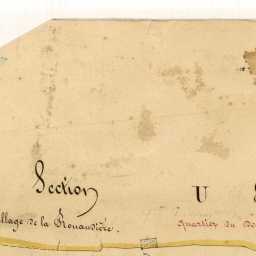 Section U
village de la Rouaudière.
quartier du